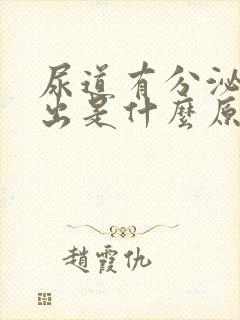 尿道有分泌
出是什麼原
趙霞仇